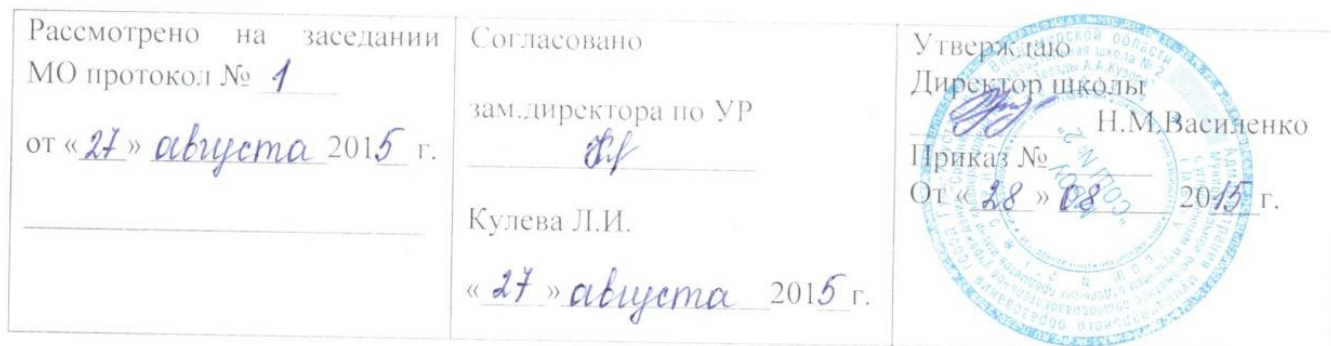 Рассмотрено на заседании
МО протокол № 1
от «27» августа 2015 г.
Согласовано
зам.директора по УР
Кулева Л.И.
«27» августа 2015 г.
Утверждаю
Директор школы
Н.М.Василенко
Приказ №
От «28» 08 2015 г.
СОШ № 2